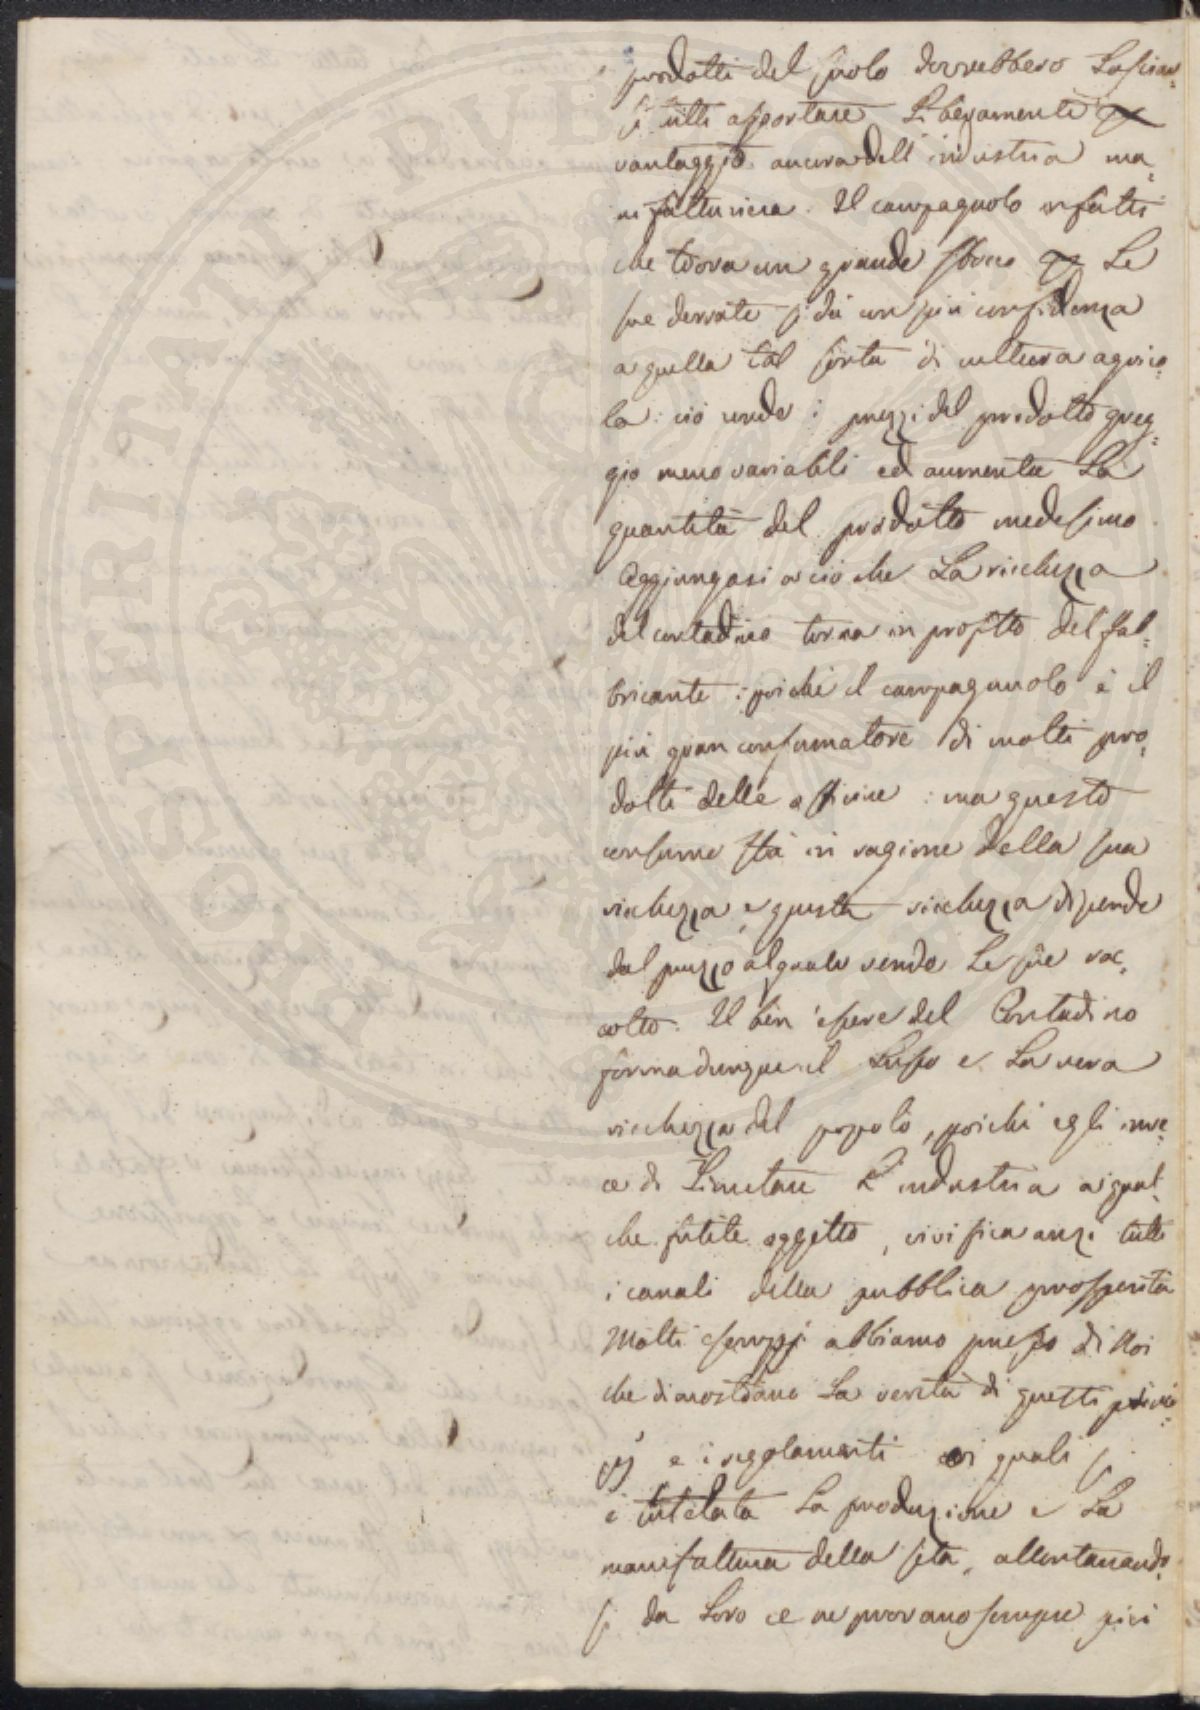 prodotti del suolo dovrebbero Lasciar=
si tutti asportare Liberamente per
vantaggio ancora dell'industria ma=
nifatturiera. Il campagnolo infatti
che trova un grande sbocco per Le
sue derrate si dà con più confidenza
a quella tal sorta di cultura agrico=
la: ciò rende i prezzi del prodotto greg=
gio meno variabili ed aumenta La
quantità del prodotto medesimo
Aggiungasi a ciò che La ricchezza
del contadino torna in profitto del fab=
bricante: poichè il campagnuolo è il
più gran consumatore di molti pro=
dotti delle officine: ma questo
consumo stà in ragione della sua
ricchezza, e questa ricchezza dipende
dal prezzo al quale vende Le sue rac=
colto. Il ben'essere del Contadino
forma dunque il Lusso e La vera
ricchezza del popolo, poichè egli inve=
ce di Limitare L'industria a qual=
che futile oggetto, vivifica anzi tutti
i canali della pubblica prosperità
Molti esempj abbiamo presso di Noi
che dimostrano La verità di questi princi=
pj e i regolamenti coi quali si
è tutelata La produzione e La
manifattura della seta, allontanando=
si da Loro ce ne provano sempre più
PROSPERITATI PVBLICAE